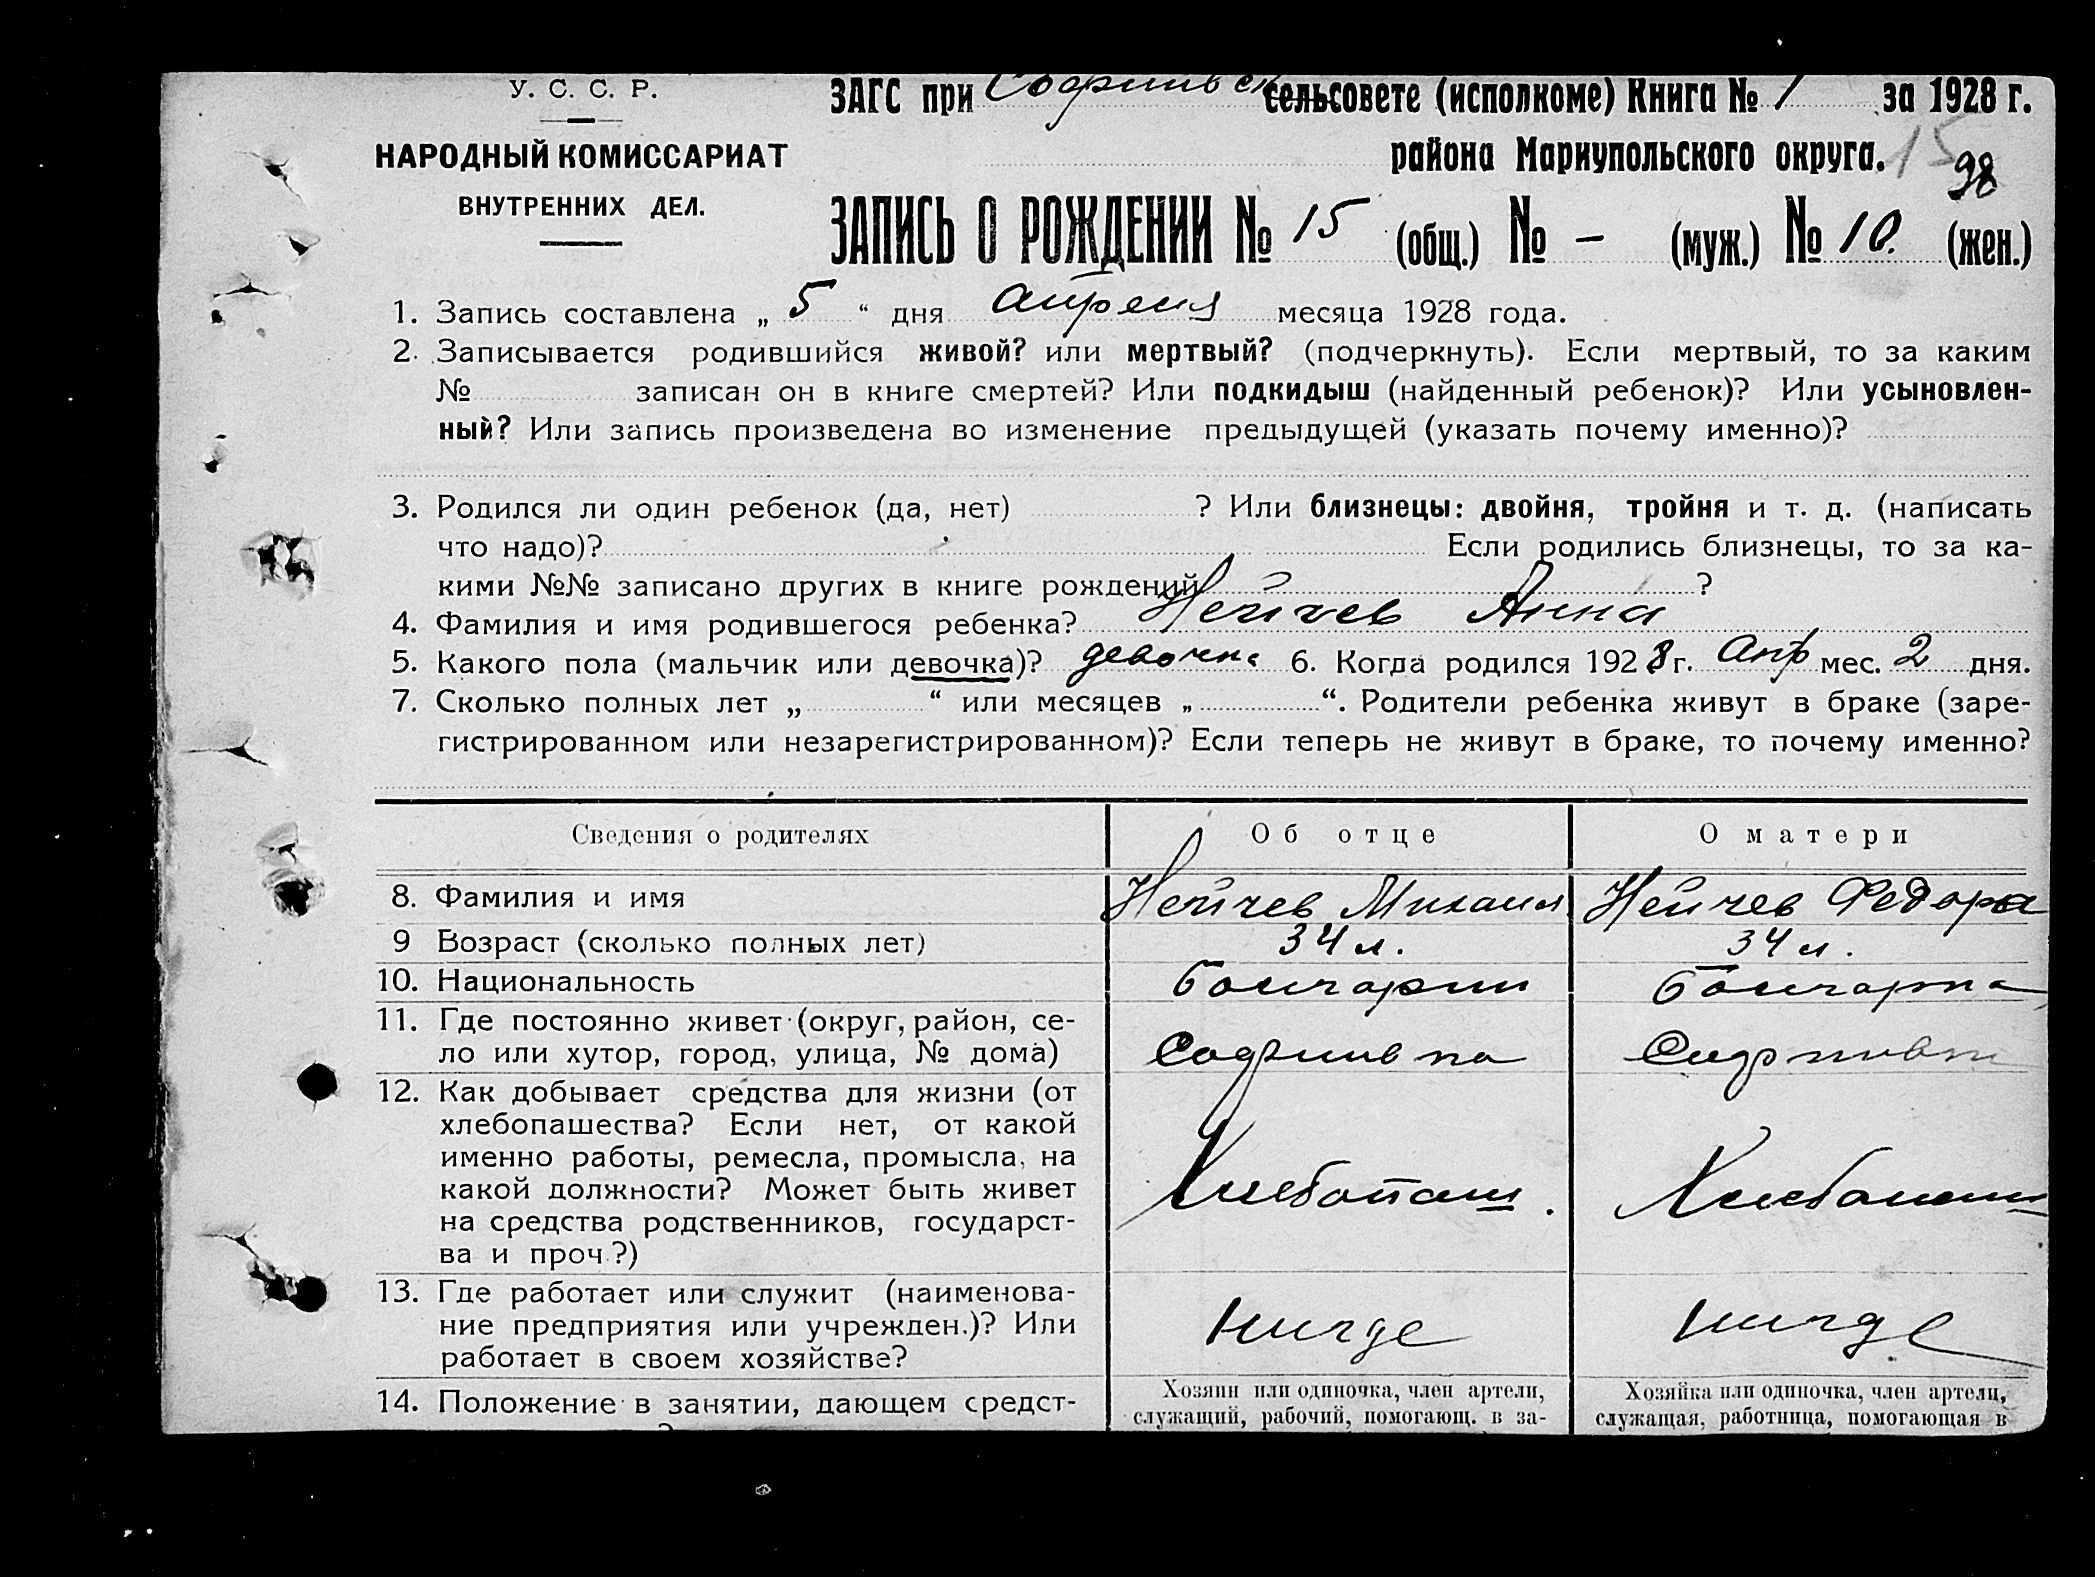 У. С. С. Р.
НАРОДНЫЙ КОМИССАРИАТ
ВНУТРЕННИХ ДЕЛ.
ЗАГС при Софиивск сельсовете (исполкоме) Книга № 1 за 1928 г.
района Мариупольского округа. 15
98
ЗАПИСЬ О РОЖДЕНИИ № 15 (общ.) № – (муж.) № 10. (жен.)
1. Запись составлена „ 5 “ дня апреля месяца 1928 года.
2. Записывается родившийся живой? или мертвый? (подчеркнуть). Если мертвый, то за каким
№ записан он в книге смертей? Или подкидыш (найденный ребенок)? Или усыновлен-
ный? Или запись произведена во изменение предыдущей (указать почему именно)?
3. Родился ли один ребенок (да, нет) ? Или близнецы: двойня, тройня и т. д. (написать
что надо)? Если родились близнецы, то за ка-
кими №№ записано других в книге рождений ?
4. Фамилия и имя родившегося ребенка? Нейчев Анна
5. Какого пола (мальчик или девочка)? девочка 6. Когда родился 1928 г. Апр мес. 2 дня.
7. Сколько полных лет „ “ или месяцев „ “. Родители ребенка живут в браке (заре-
гистрированном или незарегистрированном)? Если теперь не живут в браке, то почему именно?
Сведения о родителях Об отце О матери
8. Фамилия и имя Нейчев Михаил Нейчев Федора
9 Возраст (сколько полных лет) 34 л. 34 л.
10. Национальность Болгарин Болгарка
11. Где постоянно живет (округ, район, се-
ло или хутор, город, улица, № дома) Софиивка Софиивка
12. Как добывает средства для жизни (от
хлебопашества? Если нет, от какой
именно работы, ремесла, промысла, на
какой должности? Может быть живет
на средства родственников, государст-
ва и проч.?) Хлебопаш. Хлебопаш
13. Где работает или служит (наименова-
ние предприятия или учрежден.)? Или
работает в своем хозяйстве? нигде нигде
14. Положение в занятии, дающем средст-
Хозяин или одиночка, член артели,
служащий, рабочий, помогающ. в за-
Хозяйка или одиночка, член артели,
служащая, работница, помогающая в